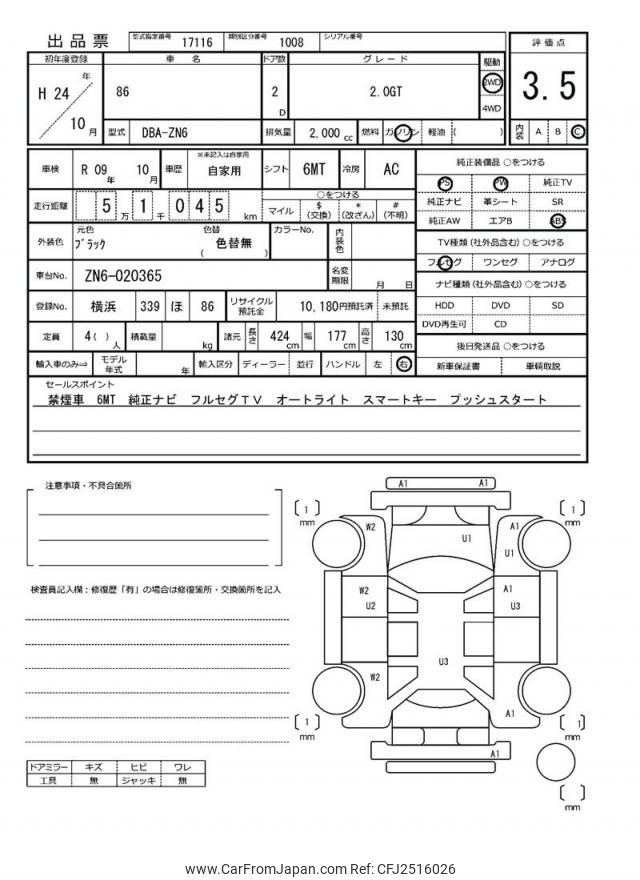 出品票 型式指定番号 17116 類別区分番号 1008 シリアル番号
初年度登録 車名 ドア数 グレード 駆動 評価点
H 24 年 10 月 86 2 D 2.0GT 2WD 4WD 3.5
型式 DBA-ZN6 排気量 2,000 cc 燃料 ガソリン 軽油 ( ) 内装 A B C
車検 R 09 年 10 月 車歴 ※未記入は自家用 自家用 シフト 6MT 冷房 AC
走行距離 5 万 1 千 0 4 5 km ○をつける
マイル $ (交換) * (改ざん) # (不明)
外装色 元色 ブラック 色替 ( 色替無 ) カラーNo. 内装色
車台No. ZN6-020365 名変期限 月 日
登録No. 横浜 339 ほ 86 リサイクル預託金 10,180円預託済 未預託
定員 4 ( ) 人 積載量 kg 諸元 長さ 424 cm 幅 177 cm 高さ 130 cm
輸入車のみ⇒ モデル年式 年 輸入区分 ディーラー 並行 ハンドル 左 右
純正装備品 ○をつける
PS PW 純正TV
純正ナビ 革シート SR
純正AW エアB ABS
TV種類 (社外品含む) ○をつける
フルセグ ワンセグ アナログ
ナビ種類 (社外品含む) ○をつける
HDD DVD SD
DVD再生可 CD
後日発送品 ○をつける
新車保証書 車輌取説
セールスポイント
禁煙車 6MT 純正ナビ フルセグTV オートライト スマートキー プッシュスタート
注意事項・不具合箇所
検査員記入欄：修復歴「有」の場合は修復箇所・交換箇所を記入
A1 A1
[ 1 ] mm [ 1 ] mm
W2 A1
U1 U1
W2 A1
U2 U3
U3
W2
A1
[ 1 ] mm [ 1 ] mm
A1
[ ] mm
ドアミラー キズ ヒビ ワレ
工具 無 ジャッキ 無
www.CarFromJapan.com Ref: CFJ2516026